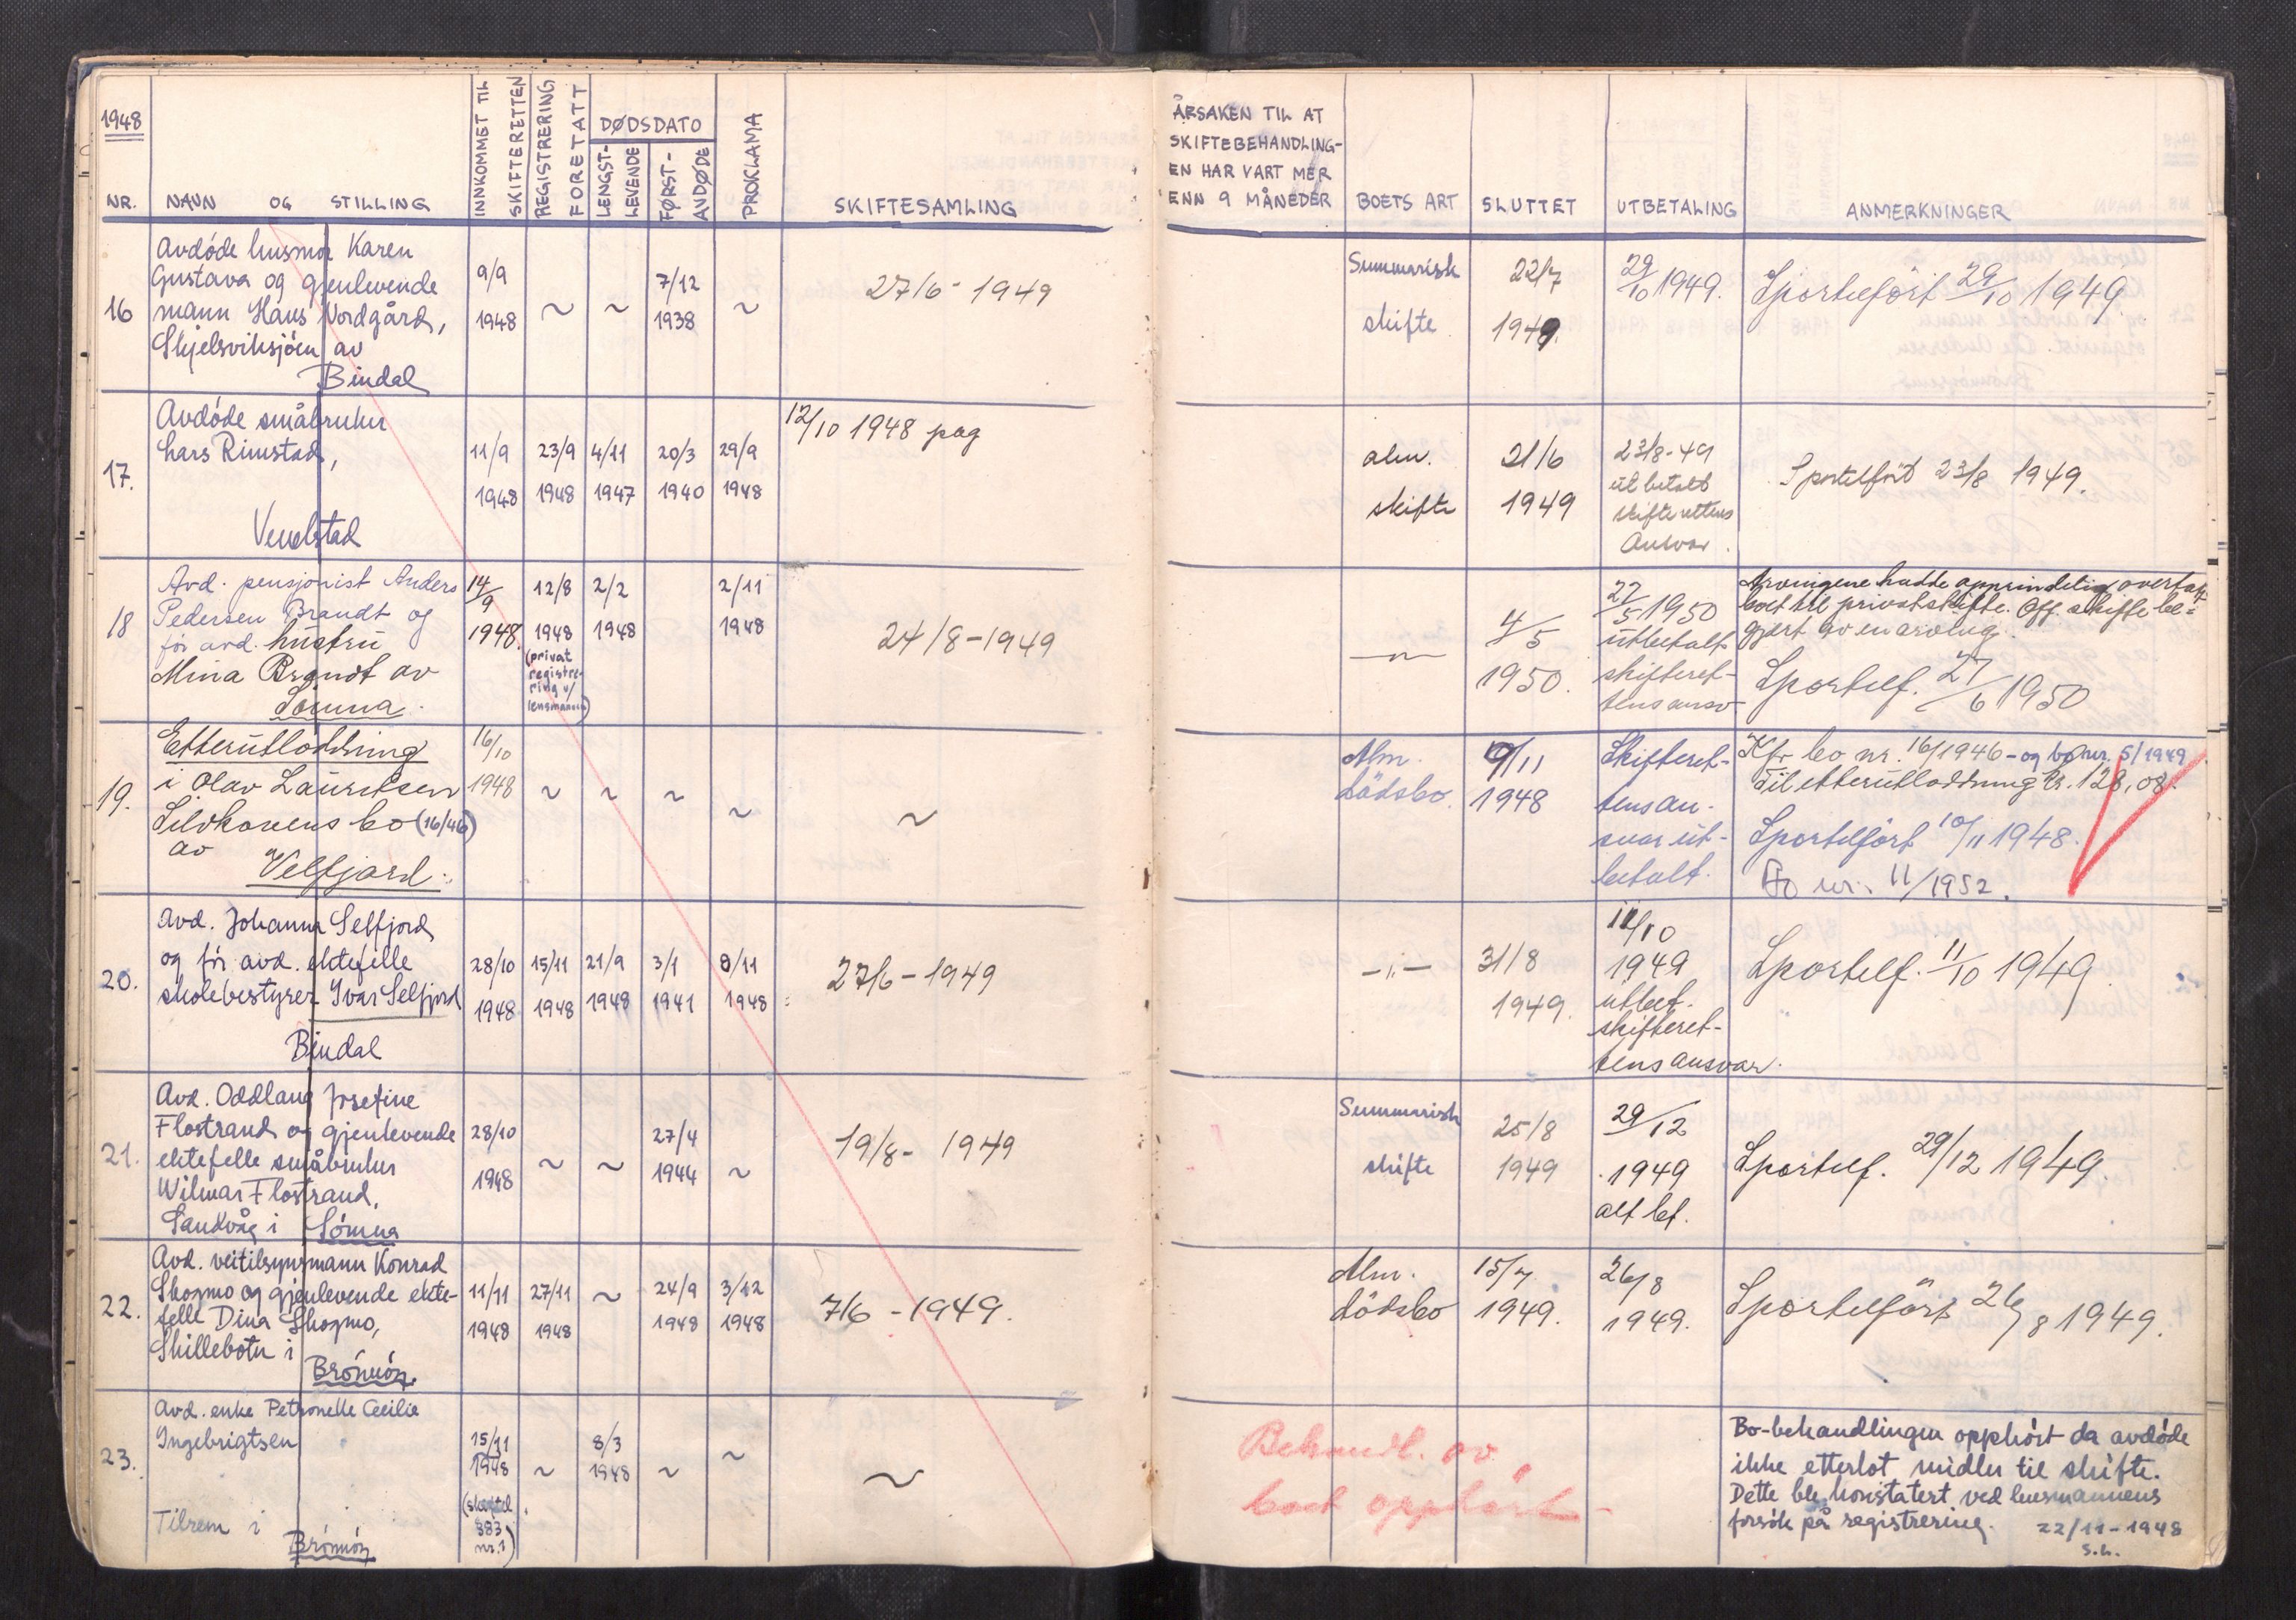 1948
NR.
NAVN OG STILLING
INNKOMMET TIL
SKIFTERETTEN
REGISTRERING
FORETATT
DØDSDATO
LENGST-
LEVENDE
FØRST-
AVDØDE
PROKLAMA
SKIFTESAMLING
ÅRSAKEN TIL AT
SKIFTEBEHANDLING-
EN HAR VART MER
ENN 9 MÅNEDER
BOETS ART
SLUTTET
UTBETALING
ANMERKNINGER
16
Avdöde husmor Karen
Gustava og gjenlevende
mann Hans Nordgård,
Skjelsviksjöen av
Bindal
9/9
1948
~
~
7/12
1938
~
27/6 - 1949
Summarisk
skifte
22/7
1949.
29/10 1949.
Sportelfört 29/10 1949.
17.
Avdöde småbruker
Lars Rimstad,
Vevelstad
11/9
1948
23/9
1948
4/11
1947
20/3
1940
29/9
1948
12/10 1948 pag
alm.
skifte
21/6
1949
23/8-49
utbetalt
skifterettens
Ansvar.
Sportelfört 23/8 1949.
18
Avd. pensjonist Anders
Pedersen Brandt og
för avd. hustru
Mina Brandt av
Sömna.
14/9
1948.
12/8
1948
(privat
registre-
ring v/
lensmannen)
2/2
1948
2/11
1948
24/8-1949
—„—
4/5
1950.
27/5 1950
utbetalt
skifteret-
tens ansv
Arvingene hadde opprindelig overtatt
boet til privat skifte. Off. skifte be-
gjært av en arving.
Sportelf. 27/6 1950
19.
Etterutloddning
i Olav Lauritsen
Silvkonens bo (16/46)
av
Velfjord.
16/10
1948
~
~
~
~
~
Alm.
dödsbo.
9/11
1948
Skifteret-
tens an-
svar ut-
betalt.
Kfr bo nr. 16/1946 - og bo nr. 5/1949
Til etterutloddning kr. 128,08.
Sportelfört 10/11 1948.
Bo nr. 11/1952.
20.
Avd. Johanna Selfjord
og för avd. ektefelle
skolebestyrer Ivar Selfjord
Bindal
28/10
1948
15/11
1948
21/9
1948
3/1
1941
9/11
1948
27/6-1949
—„—
31/8
1949.
11/10
1949
utbet.
skifteret-
tens ansvar.
Sportelf. 11/10 1949.
21.
Avd. Oddlaug Josefine
Flostrand og gjenlevende
ektefelle småbruker
Wilmar Flostrand,
Sandvåg i Sömna
28/10
1948
~
~
27/4
1944
~
19/8 - 1949
Summarisk
skifte
25/8
1949
29/12
1949
alt bet.
Sportelf. 29/12 1949.
22.
Avd. veitilsynsmann Konrad
Skogmo og gjenlevende ekte-
felle Dina Skogmo,
Skillebotn i
Brönnöy.
11/11
1948
27/11
1948
~
24/9
1948
3/12
1948
7/6 - 1949.
Alm.
dödsbo
15/7
1949.
26/8
1949.
Sportelfört 26/8 1949.
23.
Avd. enke Petronelle Cecilie
Ingebrigtsen
Tilrem i
Brönnöy
15/11
1948
383
nr. 1)
~
8/3
1948
~
~
~
Behandl. av
boet opphört -
Bo-behandlingen opphört da avdöde
ikke etterlot midler til skifte.
Dette ble konstatert ved lensmannens
forsök på registrering. 22/11-1948
s.h.